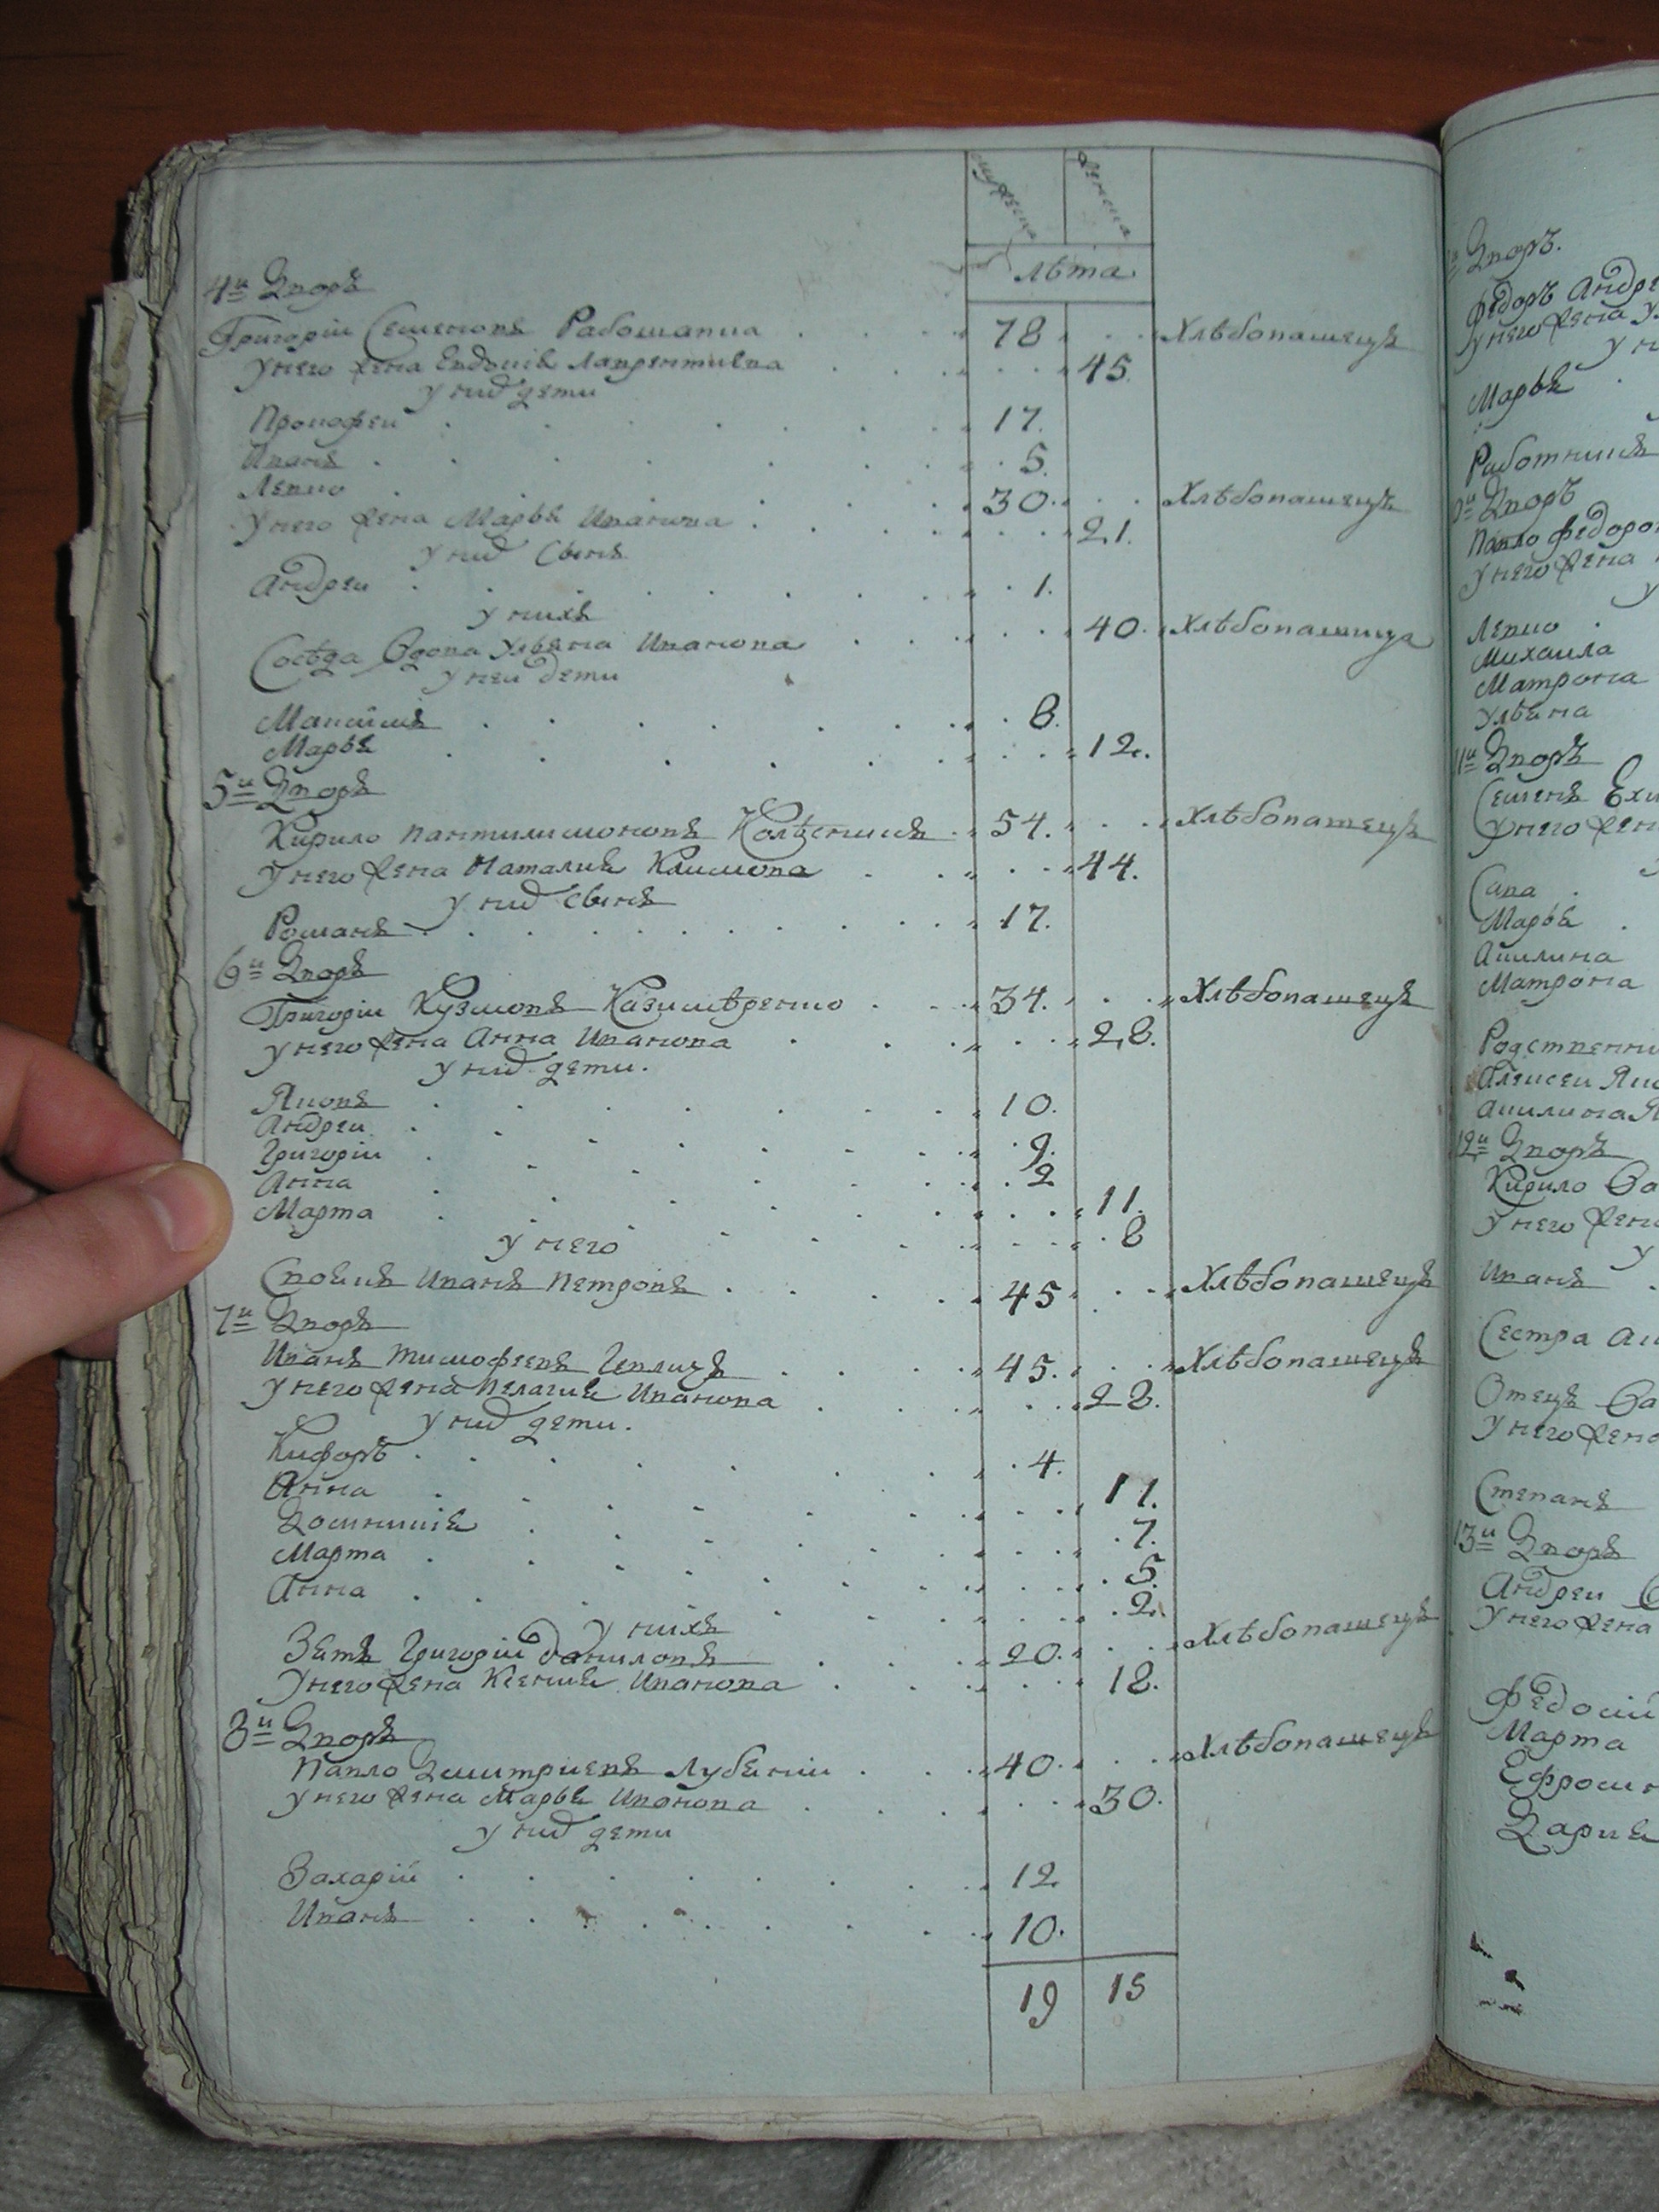 мужеска женска
лѣта
4й Дворъ
Григорій Семеновъ Работапка 78 Хлѣбопашецъ
У него жена Евдокія Лаврентиева 45.
У них дети
Прокофеи 17.
Иванъ 5.
Левко 30. Хлѣбопашецъ
У него жена Марья Иванова 21.
У них сынъ
Андреи 1.
У нихъ
Сосѣда вдова Ульяна Иванова 40. Хлѣбопашица
У неи дети
Максимъ 8.
Марья 12.
5й Дворъ
Кирило Пантилимоновъ Колѣсникъ 54. Хлѣбопашецъ
У него жена Наталия Климова 44.
У них сынъ
Романъ 17.
6й Дворъ
Григоріи Кузмовъ Казимѣренко 34. Хлѣбопашецъ
У него жена Анна Иванова 28.
У них дети.
Яковъ 10.
Андреи 9.
Григоріи 2
Анна 11.
Марта 8
У него
Своякъ Иванъ Петровъ 45 Хлѣбопашецъ
7й Дворъ
Иванъ Тимофеевъ 45. Хлѣбопашецъ
У него жена Пелагия Иванова 28.
У них дети.
Кифоръ 4.
Анна 11.
Домникия 7.
Марта 5.
Анна 2.
У нихъ
Зять Григоріи Даниловъ 20. Хлѣбопашецъ
У него жена Ксения Иванова 18.
8й Дворъ
Павло Дмитриевъ Лубяніи 40. Хлѣбопашецъ
У него жена Марья Иванова 30.
У них дети
Захарій 12
Иванъ 10.
19 15
Дворъ.
Федоръ Андре
У него жена У
У н
Марья
Работникъ
Дворъ
Павло Федоро
У него жена
У
Левко
Михаила
Матрона
Ульяна
11й Дворъ
Семенъ Ехи
У него жен
Сава
Марья
Акилина
Матрона
Родственни
Алексеи Яко
Акилина Я
12й Дворъ
Кирило Ва
У него жен
У
Иванъ
Сестра Ак
Отецъ Ва
У него жена
Степанъ
13й Дворъ
Андреи
У него жена
Федосий
Марта
Ефросин
Дария